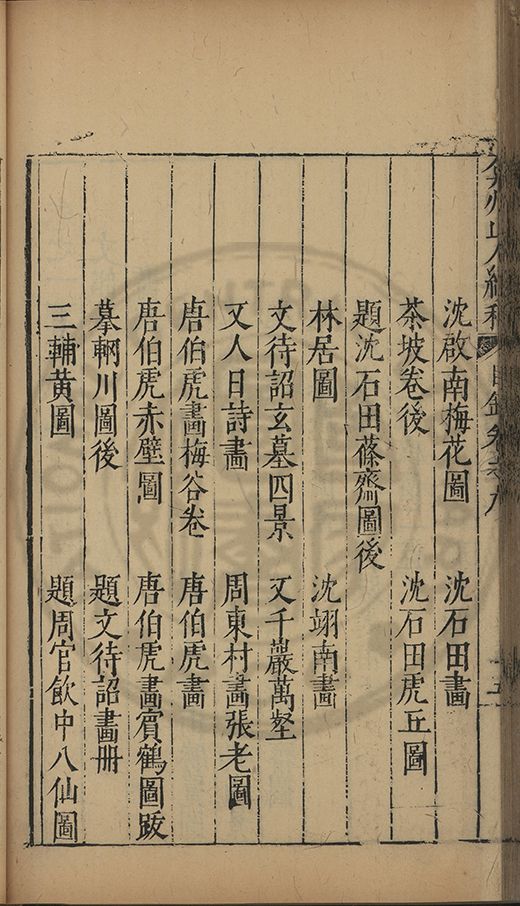 沈啟南梅花圖　沈石田畫
茶坡卷後　沈石田虎丘圖
題沈石田蓧齋圖後
林居圖　沈翊南畫
文待詔玄墓四景　又千巖萬壑
又人日詩畫　周東村畫張老圖
唐伯虎畫梅谷卷　唐伯虎畫
唐伯虎赤壁圖　唐伯虎畫賓鶴圖跋
摹輞川圖後　題文待詔畫冊
三輔黃圖　題周官飲中八仙圖